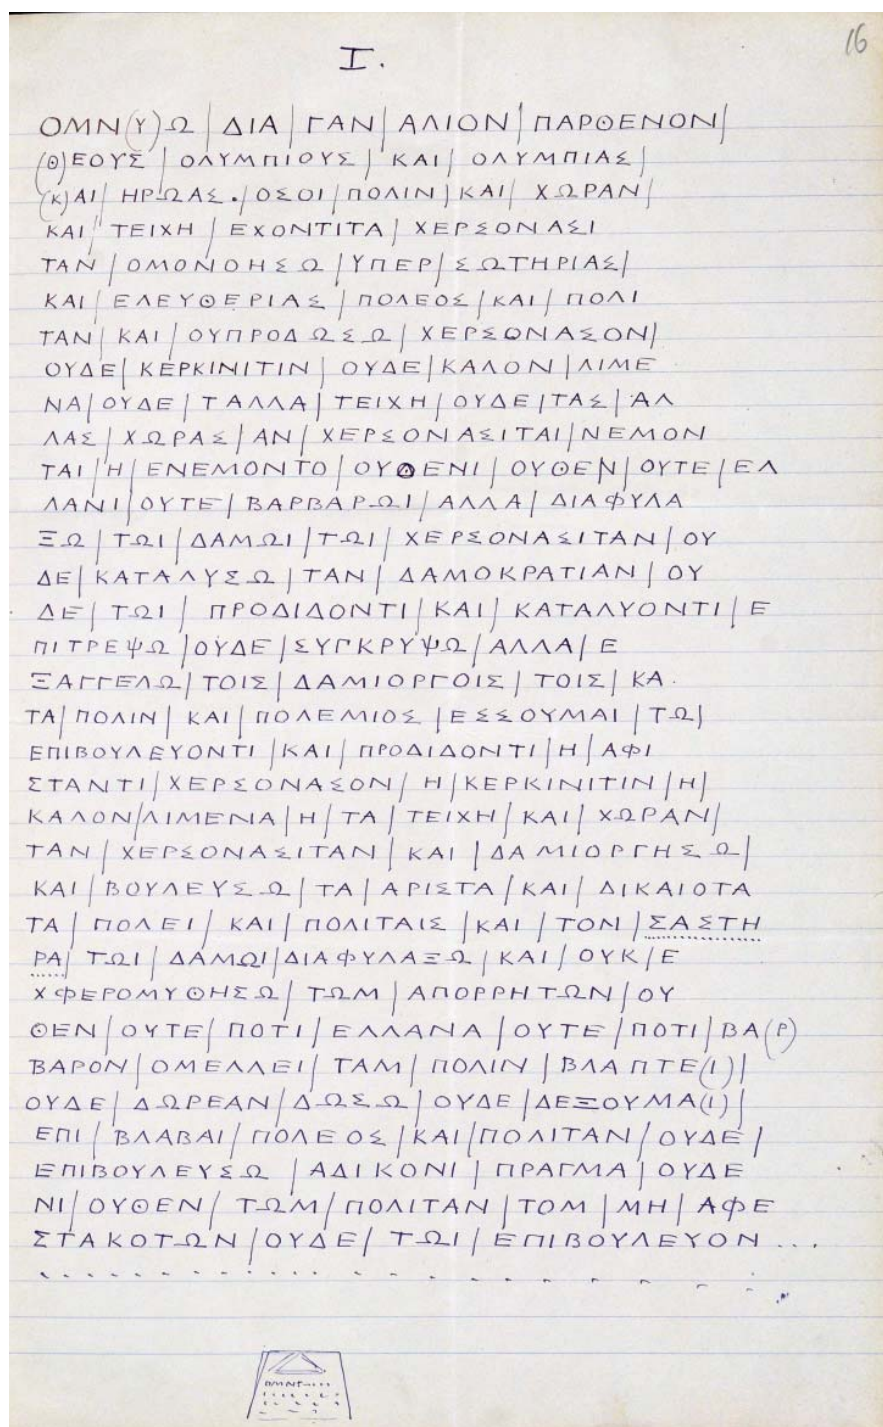 I.
16
ΟΜΝ(Υ)Ω|ΔΙΑ|ΓΑΝ|ΑΛΙΟΝ|ΠΑΡΘΕΝΟΝ|
(Θ)ΕΟΥΣ|ΟΛΥΜΠΙΟΥΣ|ΚΑΙ|ΟΛΥΜΠΙΑΣ|
(Κ)ΑΙ|ΗΡΩΑΣ.|ΟΣΟΙ|ΠΟΛΙΝ|ΚΑΙ|ΧΩΡΑΝ|
ΚΑΙ|ΤΕΙΧΗ|ΕΧΟΝΤΙΤΑ|ΧΕΡΣΟΝΑΣΙ
ΤΑΝ|ΟΜΟΝΟΗΣΩ|ΥΠΕΡ|ΣΩΤΗΡΙΑΣ|
ΚΑΙ|ΕΛΕΥΘΕΡΙΑΣ|ΠΟΛΕΟΣ|ΚΑΙ|ΠΟΛΙ
ΤΑΝ|ΚΑΙ|ΟΥΠΡΟΔΩΣΩ|ΧΕΡΣΟΝΑΣΟΝ|
ΟΥΔΕ|ΚΕΡΚΙΝΙΤΙΝ|ΟΥΔΕ|ΚΑΛΟΝ|ΛΙΜΕ
ΝΑ|ΟΥΔΕ|ΤΑΛΛΑ|ΤΕΙΧΗ|ΟΥΔΕ|ΤΑΣ|ΑΛ
ΛΑΣ|ΧΩΡΑΣ|ΑΝ|ΧΕΡΣΟΝΑΣΙΤΑΙ|ΝΕΜΟΝ
ΤΑΙ|Η|ΕΝΕΜΟΝΤΟ|ΟΥΘΕΝΙ|ΟΥΘΕΝ|ΟΥΤΕ|ΕΛ
ΛΑΝΙ|ΟΥΤΕ|ΒΑΡΒΑΡΩΙ|ΑΛΛΑ|ΔΙΑΦΥΛΑ
ΞΩ|ΤΩΙ|ΔΑΜΩΙ|ΤΩΙ|ΧΕΡΣΟΝΑΣΙΤΑΝ|ΟΥ
ΔΕ|ΚΑΤΑΛΥΣΩ|ΤΑΝ|ΔΑΜΟΚΡΑΤΙΑΝ|ΟΥ
ΔΕ|ΤΩΙ|ΠΡΟΔΙΔΟΝΤΙ|ΚΑΙ|ΚΑΤΑΛΥΟΝΤΙ|Ε
ΠΙΤΡΕΨΩ|ΟΥΔΕ|ΣΥΓΚΡΥΨΩ|ΑΛΛΑ|Ε
ΞΑΓΓΕΛΩ|ΤΟΙΣ|ΔΑΜΙΟΡΓΟΙΣ|ΤΟΙΣ|ΚΑ.
ΤΑ|ΠΟΛΙΝ|ΚΑΙ|ΠΟΛΕΜΙΟΣ|ΕΣΣΟΥΜΑΙ|ΤΩ|
ΕΠΙΒΟΥΛΕΥΟΝΤΙ|ΚΑΙ|ΠΡΟΔΙΔΟΝΤΙ|Η|ΑΦΙ
ΣΤΑΝΤΙ|ΧΕΡΣΟΝΑΣΟΝ|Η|ΚΕΡΚΙΝΙΤΙΝ|Η|
ΚΑΛΟΝ|ΛΙΜΕΝΑ|Η|ΤΑ|ΤΕΙΧΗ|ΚΑΙ|ΧΩΡΑΝ|
ΤΑΝ|ΧΕΡΣΟΝΑΣΙΤΑΝ|ΚΑΙ|ΔΑΜΙΟΡΓΗΣΩ|
ΚΑΙ|ΒΟΥΛΕΥΣΩ|ΤΑ|ΑΡΙΣΤΑ|ΚΑΙ|ΔΙΚΑΙΟΤΑ
ΤΑ|ΠΟΛΕΙ|ΚΑΙ|ΠΟΛΙΤΑΙΣ|ΚΑΙ|ΤΟΝ|ΣΑΣΤΗ
ΡΑ|ΤΩΙ|ΔΑΜΩΙ|ΔΙΑΦΥΛΑΞΩ|ΚΑΙ|ΟΥΚ|Ε
ΧΦΕΡΟΜΥΘΗΣΩ|ΤΩΜ|ΑΠΟΡΡΗΤΩΝ|ΟΥ
ΘΕΝ|ΟΥΤΕ|ΠΟΤΙ|ΕΛΛΑΝΑ|ΟΥΤΕ|ΠΟΤΙ|ΒΑ(Ρ)
ΒΑΡΟΝ|ΟΜΕΛΛΕΙ|ΤΑΜ|ΠΟΛΙΝ|ΒΛΑΠΤΕ(Ι)|
ΟΥΔΕ|ΔΩΡΕΑΝ|ΔΩΣΩ|ΟΥΔΕ|ΔΕΞΟΥΜΑ(Ι)|
ΕΠΙ|ΒΛΑΒΑΙ|ΠΟΛΕΟΣ|ΚΑΙ|ΠΟΛΙΤΑΝ|ΟΥΔΕ|
ΕΠΙΒΟΥΛΕΥΣΩ|ΑΔΙΚΟΝΙ|ΠΡΑΓΜΑ|ΟΥΔΕ
ΝΙ|ΟΥΘΕΝ|ΤΩΜ|ΠΟΛΙΤΑΝ|ΤΟΜ|ΜΗ|ΑΦΕ
ΣΤΑΚΟΤΩΝ|ΟΥΔΕ|ΤΩΙ|ΕΠΙΒΟΥΛΕΥΟΝ...